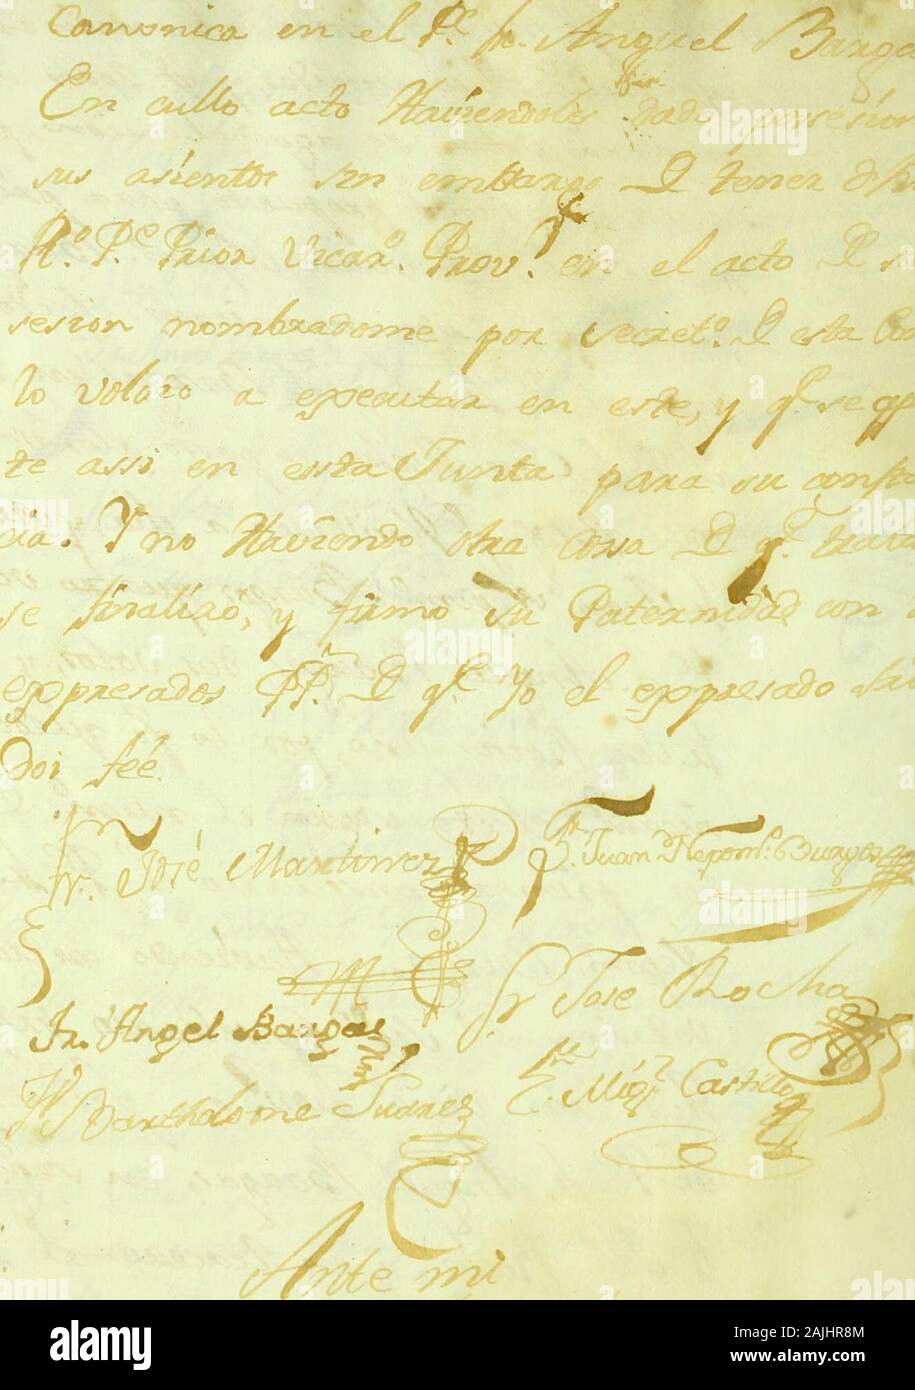 Canonica en el P.e fr. Anguel Barga
En cullo acto Haviendoles dado posesion
sus asientos sin embargo D tener
R.o P.e Prior Vicar.o Prov.l en el acto D
sesion nombradome por Secret.o D esta
lo volvio a expecutar en este, y q.e se
te assi en esta Junta para su const
cia. Y no Haviendo otra Cosa D q.e trata
se finalizó, y firmo su Paternidad con
expresados PP. D q.e Yo el expresado
doi feé.
Fr. José Martinez
Fr. Juan Nepom.o Burgos
Fr. Jose Rocha
Fr. Angel Bargas
Fr. Mig.l Castillo
Bartholome Suarez
Ante mi
alamy
Image ID: 2AJHR8M
www.alamy.com